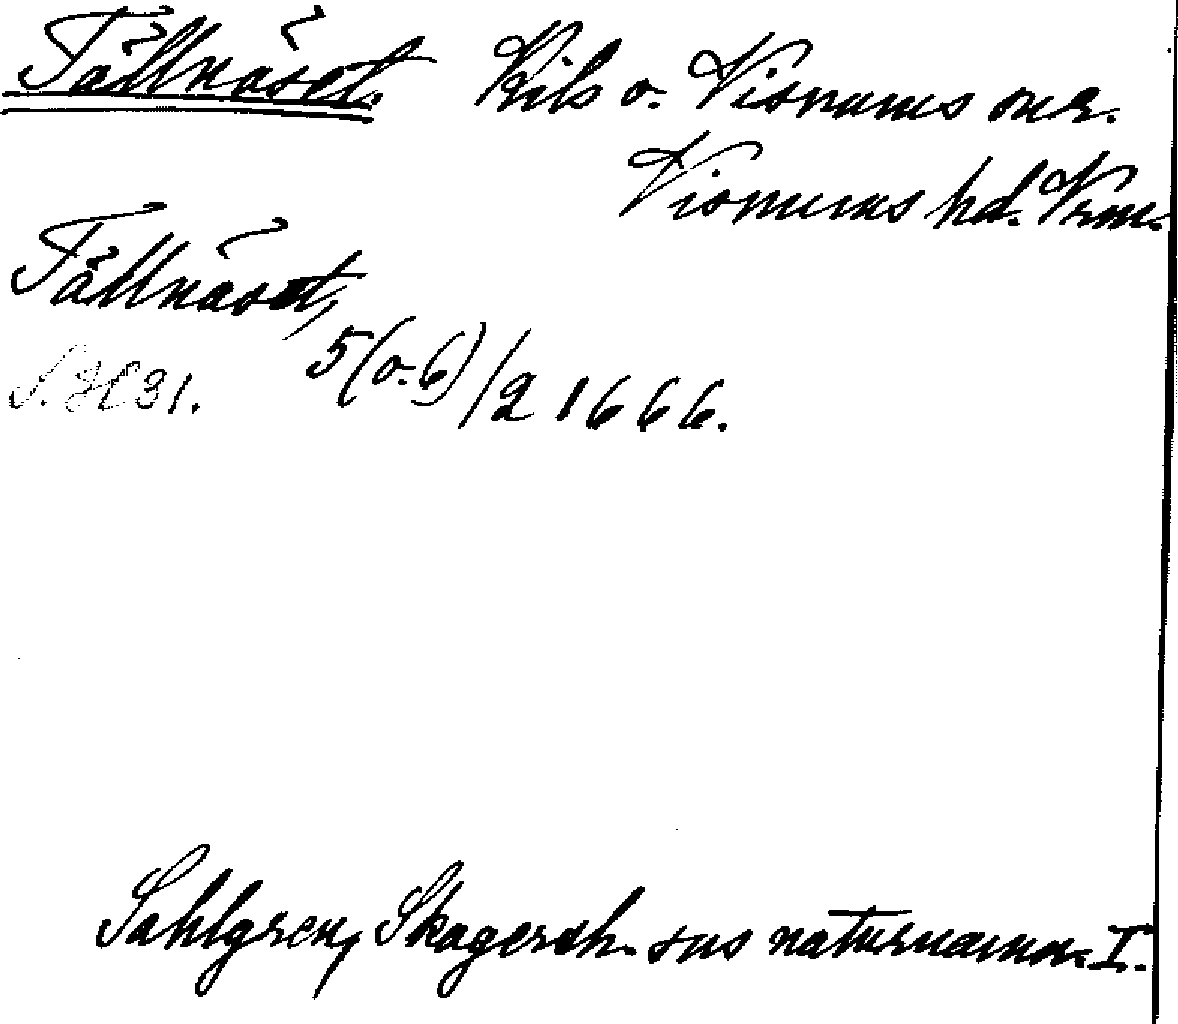 Tållnäset. Kils o. Visnums snr.
Visnums hd. Vrm.
Tållnäset,
5(o.6)/2 1666.
S. 31.
Sahlgren, Skagersh. sns naturnamn. I.